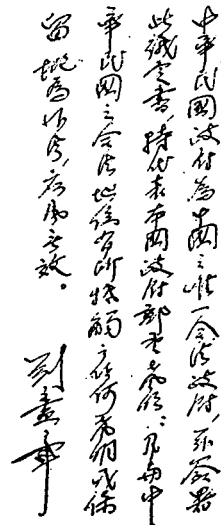 中華民國政府為中國之唯一合法政府,茲簽署
此議定書,特代表本國政府鄭重聲明:凡與中
華民國之合法地位有所牴觸之任何聲明或保
留概為非法,應屬無效。
劉藎章